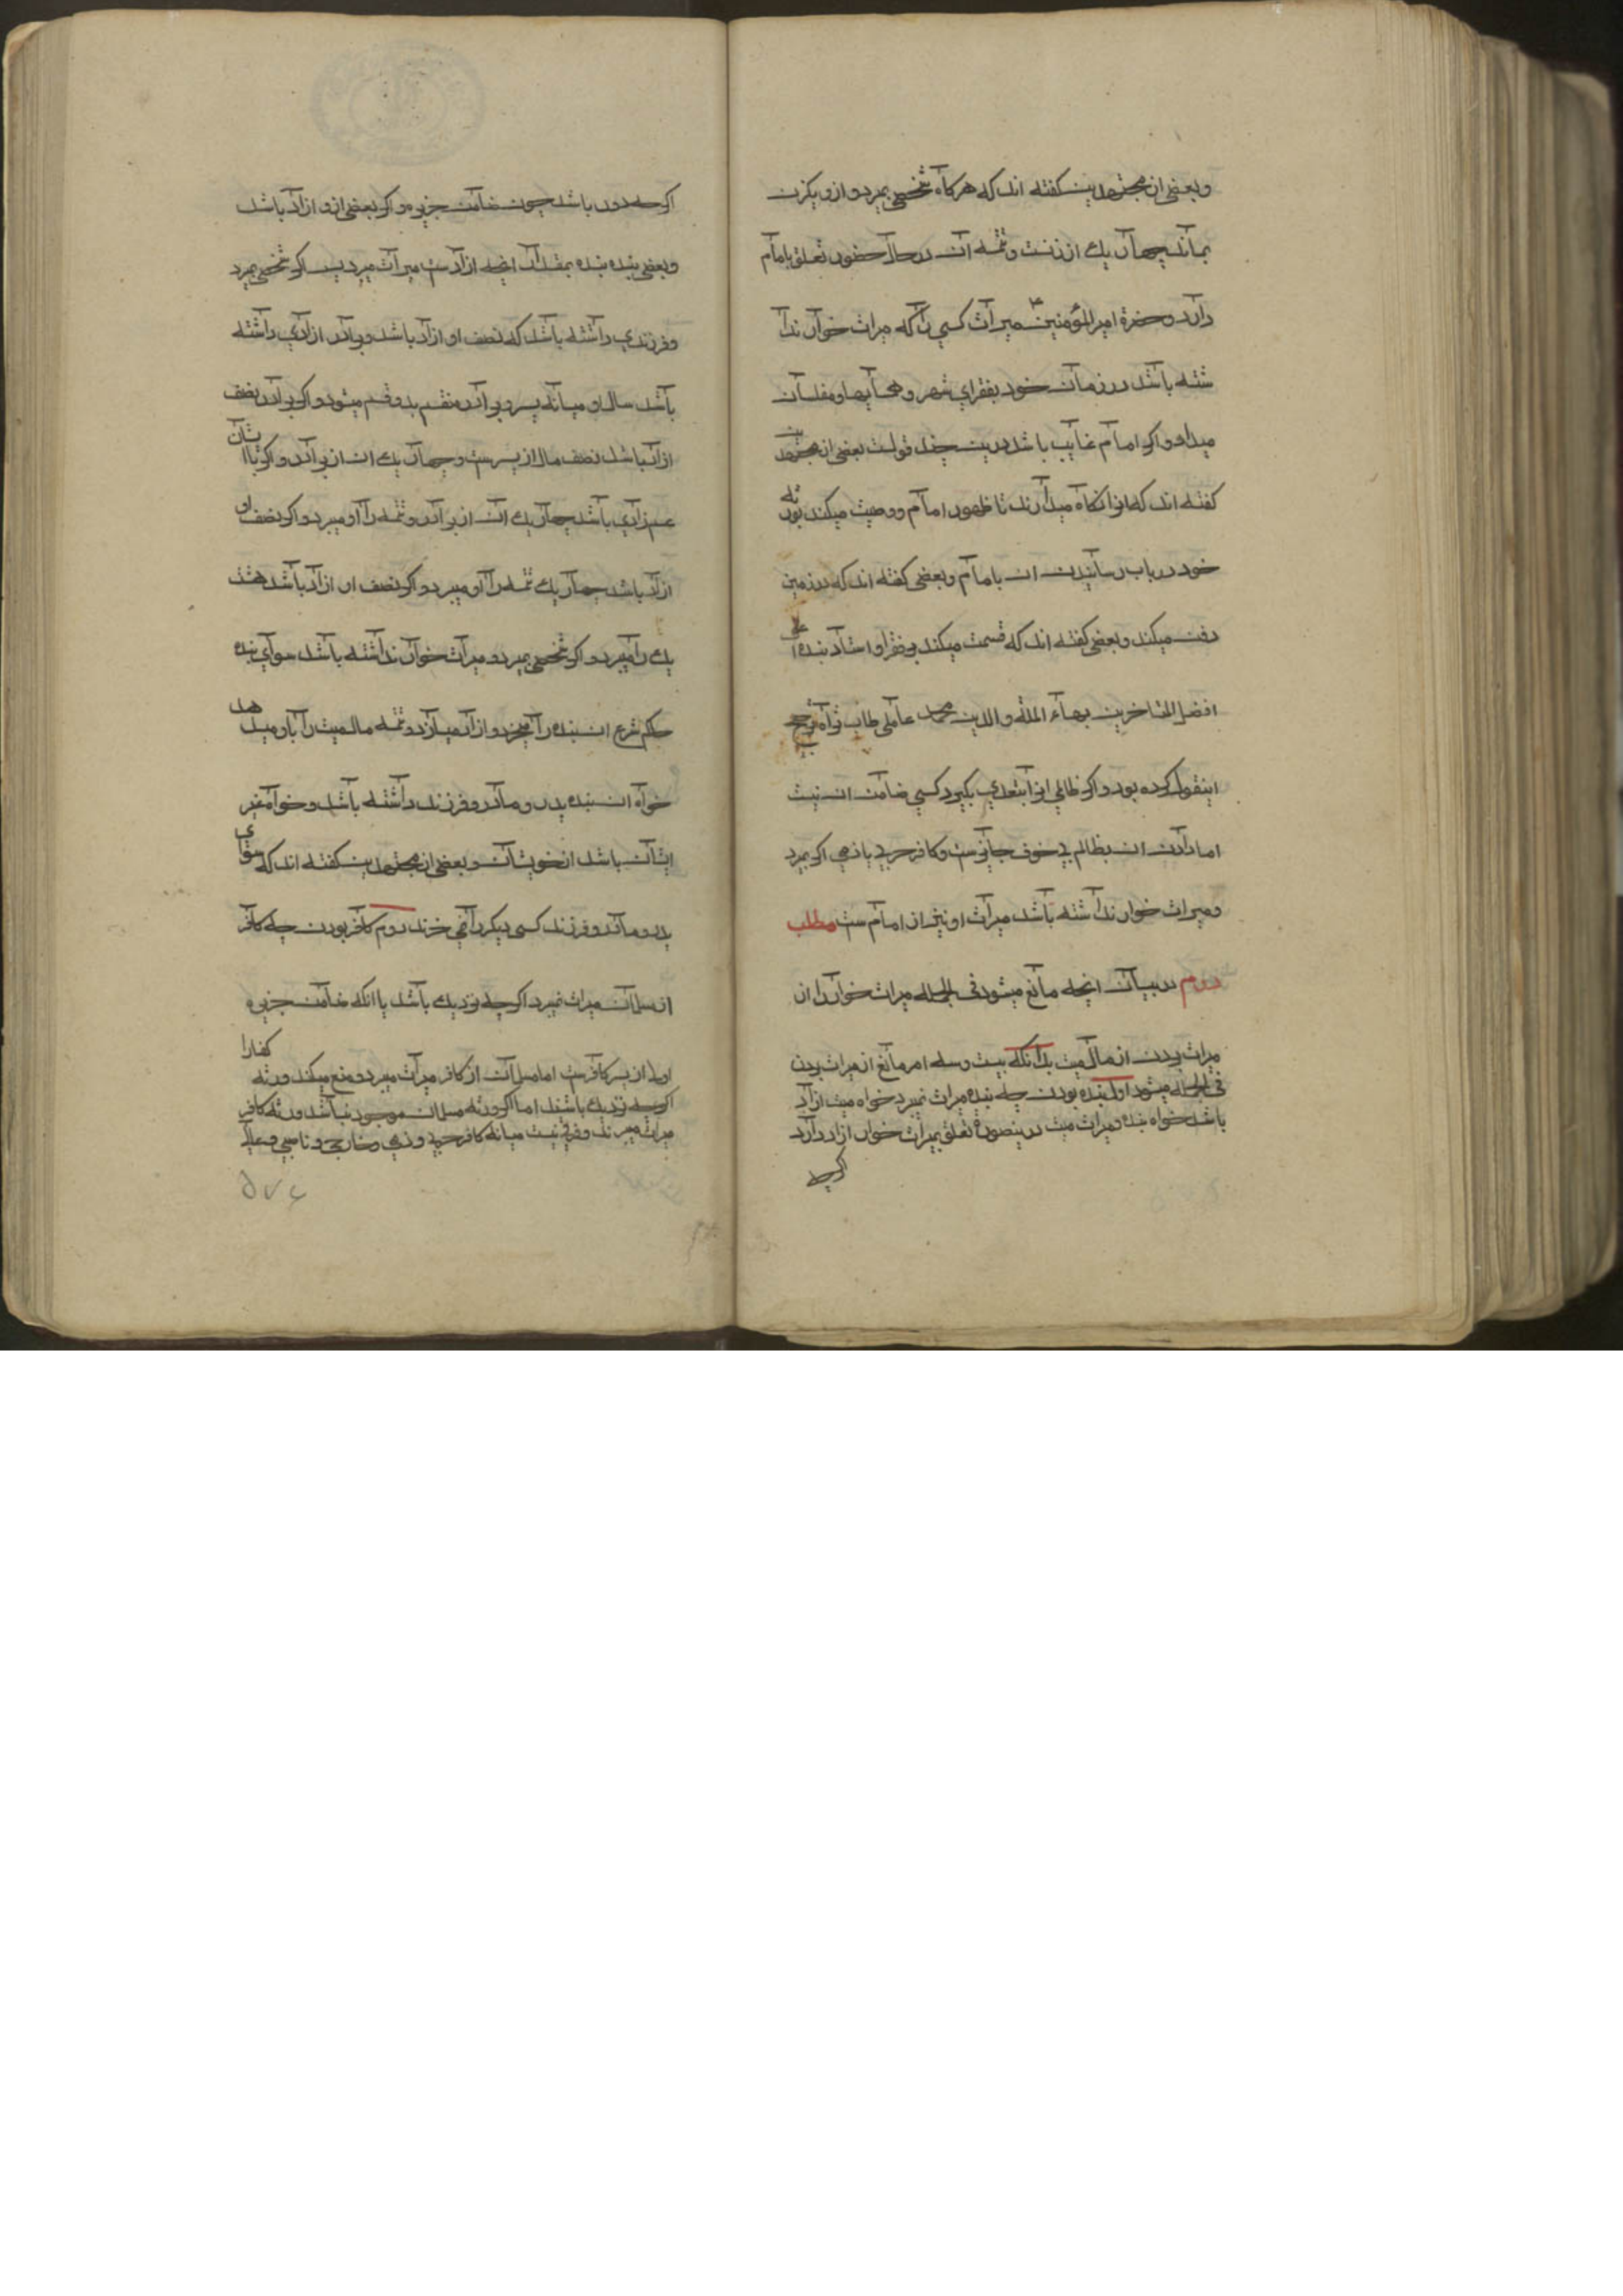 وبعضی از مجتهدین کفته اند که هرکاه شخصی بمیرد و ازو یکزن
بماند چهار یك از زنست و تتمه ان در حال حضور تعلق بامام
دارد و حضرة امیر المؤمنین میراث کسی را که میراث خوار ندا
شته باشد در زمان خود بفقرای شهر و همسایها و مفلسان
میداد و اکر امام غایب باشد درین چند قولست بعضی از مجتهد ین
کفته اند که انرا نکاه میدارند تا ظهور امام و وصیت میکند
خود در باب رسانیدن ان بامام وبعضی کفته اند که در زمین
دفن میکند وبعضی کفته اند که قسمت میکند بر فقرا و استاد بنده
افضل المتاخرین بهاء المله والدین محمد عاملی طاب ثراه
اینقول کرده بود و اکر ظالمی انرا بتعدی بکیرد کسی ضامن ان نیست
اما دادن ان بظالم بی خوف جایز نیست و کافر حربی یا ذمی اکر بمیرد
و میراث خوار نداشته باشد میراث او نیز از امام ست مطلب
دوم در بیان انچه مانع میشود فی الجمله میراث خوار را از
میراث بردن از مال میت بدانکه بیست و سه امر مانع از میراث بردن
فی الجمله میشود اول بنده بودن چه بنده میراث نمیبرد خواه میت ازاد
باشد خواه بنده و میراث میت درینصورة تعلق بمیراث خوار ازاد دارد
اکرچه
اکرچه دور باشد چون ضامن جزیره و اکر بعضی ازو ازاد باشد
وبعضی بنده بنده بمقدار انچه ازاد ست میراث میبرد پس اکر شخصی بمیرد
وفرزندی داشته باشد که نصف او ازاد باشد وبرادر ازادی داشته
باشد مال او میانه پسر و برادر منقسم بدو قسم میشود و اکر برادر نصف
ازاد باشد نصف مال از پسرست و چهار یك ان از برادر و اکر با ایشان
عم ازادی باشد چهار یك ان از برادر و تتمه را او میبرد و اکر نصف او
ازاد باشد چهار یك تتمه را او میبرد و اکر نصف او ازاد باشد هشت
یك را میبرد و اکر شخصی بمیرد و میراث خوار نداشته باشد سوای بنده
حاکم شرع ان بنده را میخرد و ازاد میسازد و تتمه مال میت را باو میدهد
خواه ان بنده پدر و مادر و فرزند داشته باشد و خواه غیر
ایشان باشد از خویشان و بعضی از مجتهدین کفته اند که سوای
پدر و مادر و فرزند کسی دیکر را نمی خرند دوم کافر بودن چه کافر
از مسلمان میراث نمیبرد اکرچه نزدیك باشد یا انکه ضامن جزیره
اولی از پسر کافرست اما مسلمان از کافر میراث میبرد و منع میکند ورثه کفار را
اکرچه نزدیك باشند اما اکر ورثه مسلمان موجود نباشد ورثه کافر
میراث میبرند و فرقی نیست میانه کافر حربی و ذمی و خارجی و ناصبی و غالی